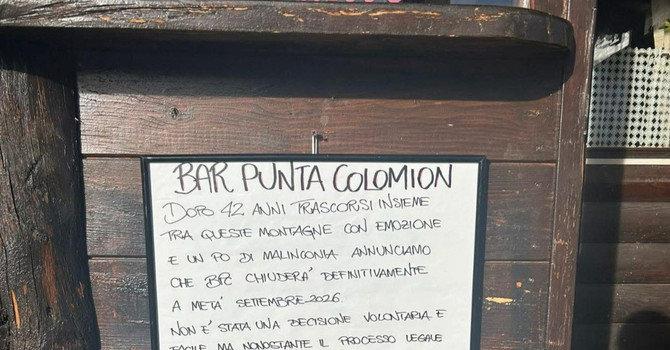 BAR PUNTA COLOMION
DOPO 42 ANNI TRASCORSI INSIEME
TRA QUESTE MONTAGNE CON EMOZIONE
E UN PO DI MALINCONIA ANNUNCIAMO
CHE BPC CHIUDERA' DEFINITIVAMENTE
A META' SETTEMBRE 2026.
NON E' STATA UNA DECISIONE VOLONTARIA E
FACILE MA NONOSTANTE IL PROCESSO LEGALE